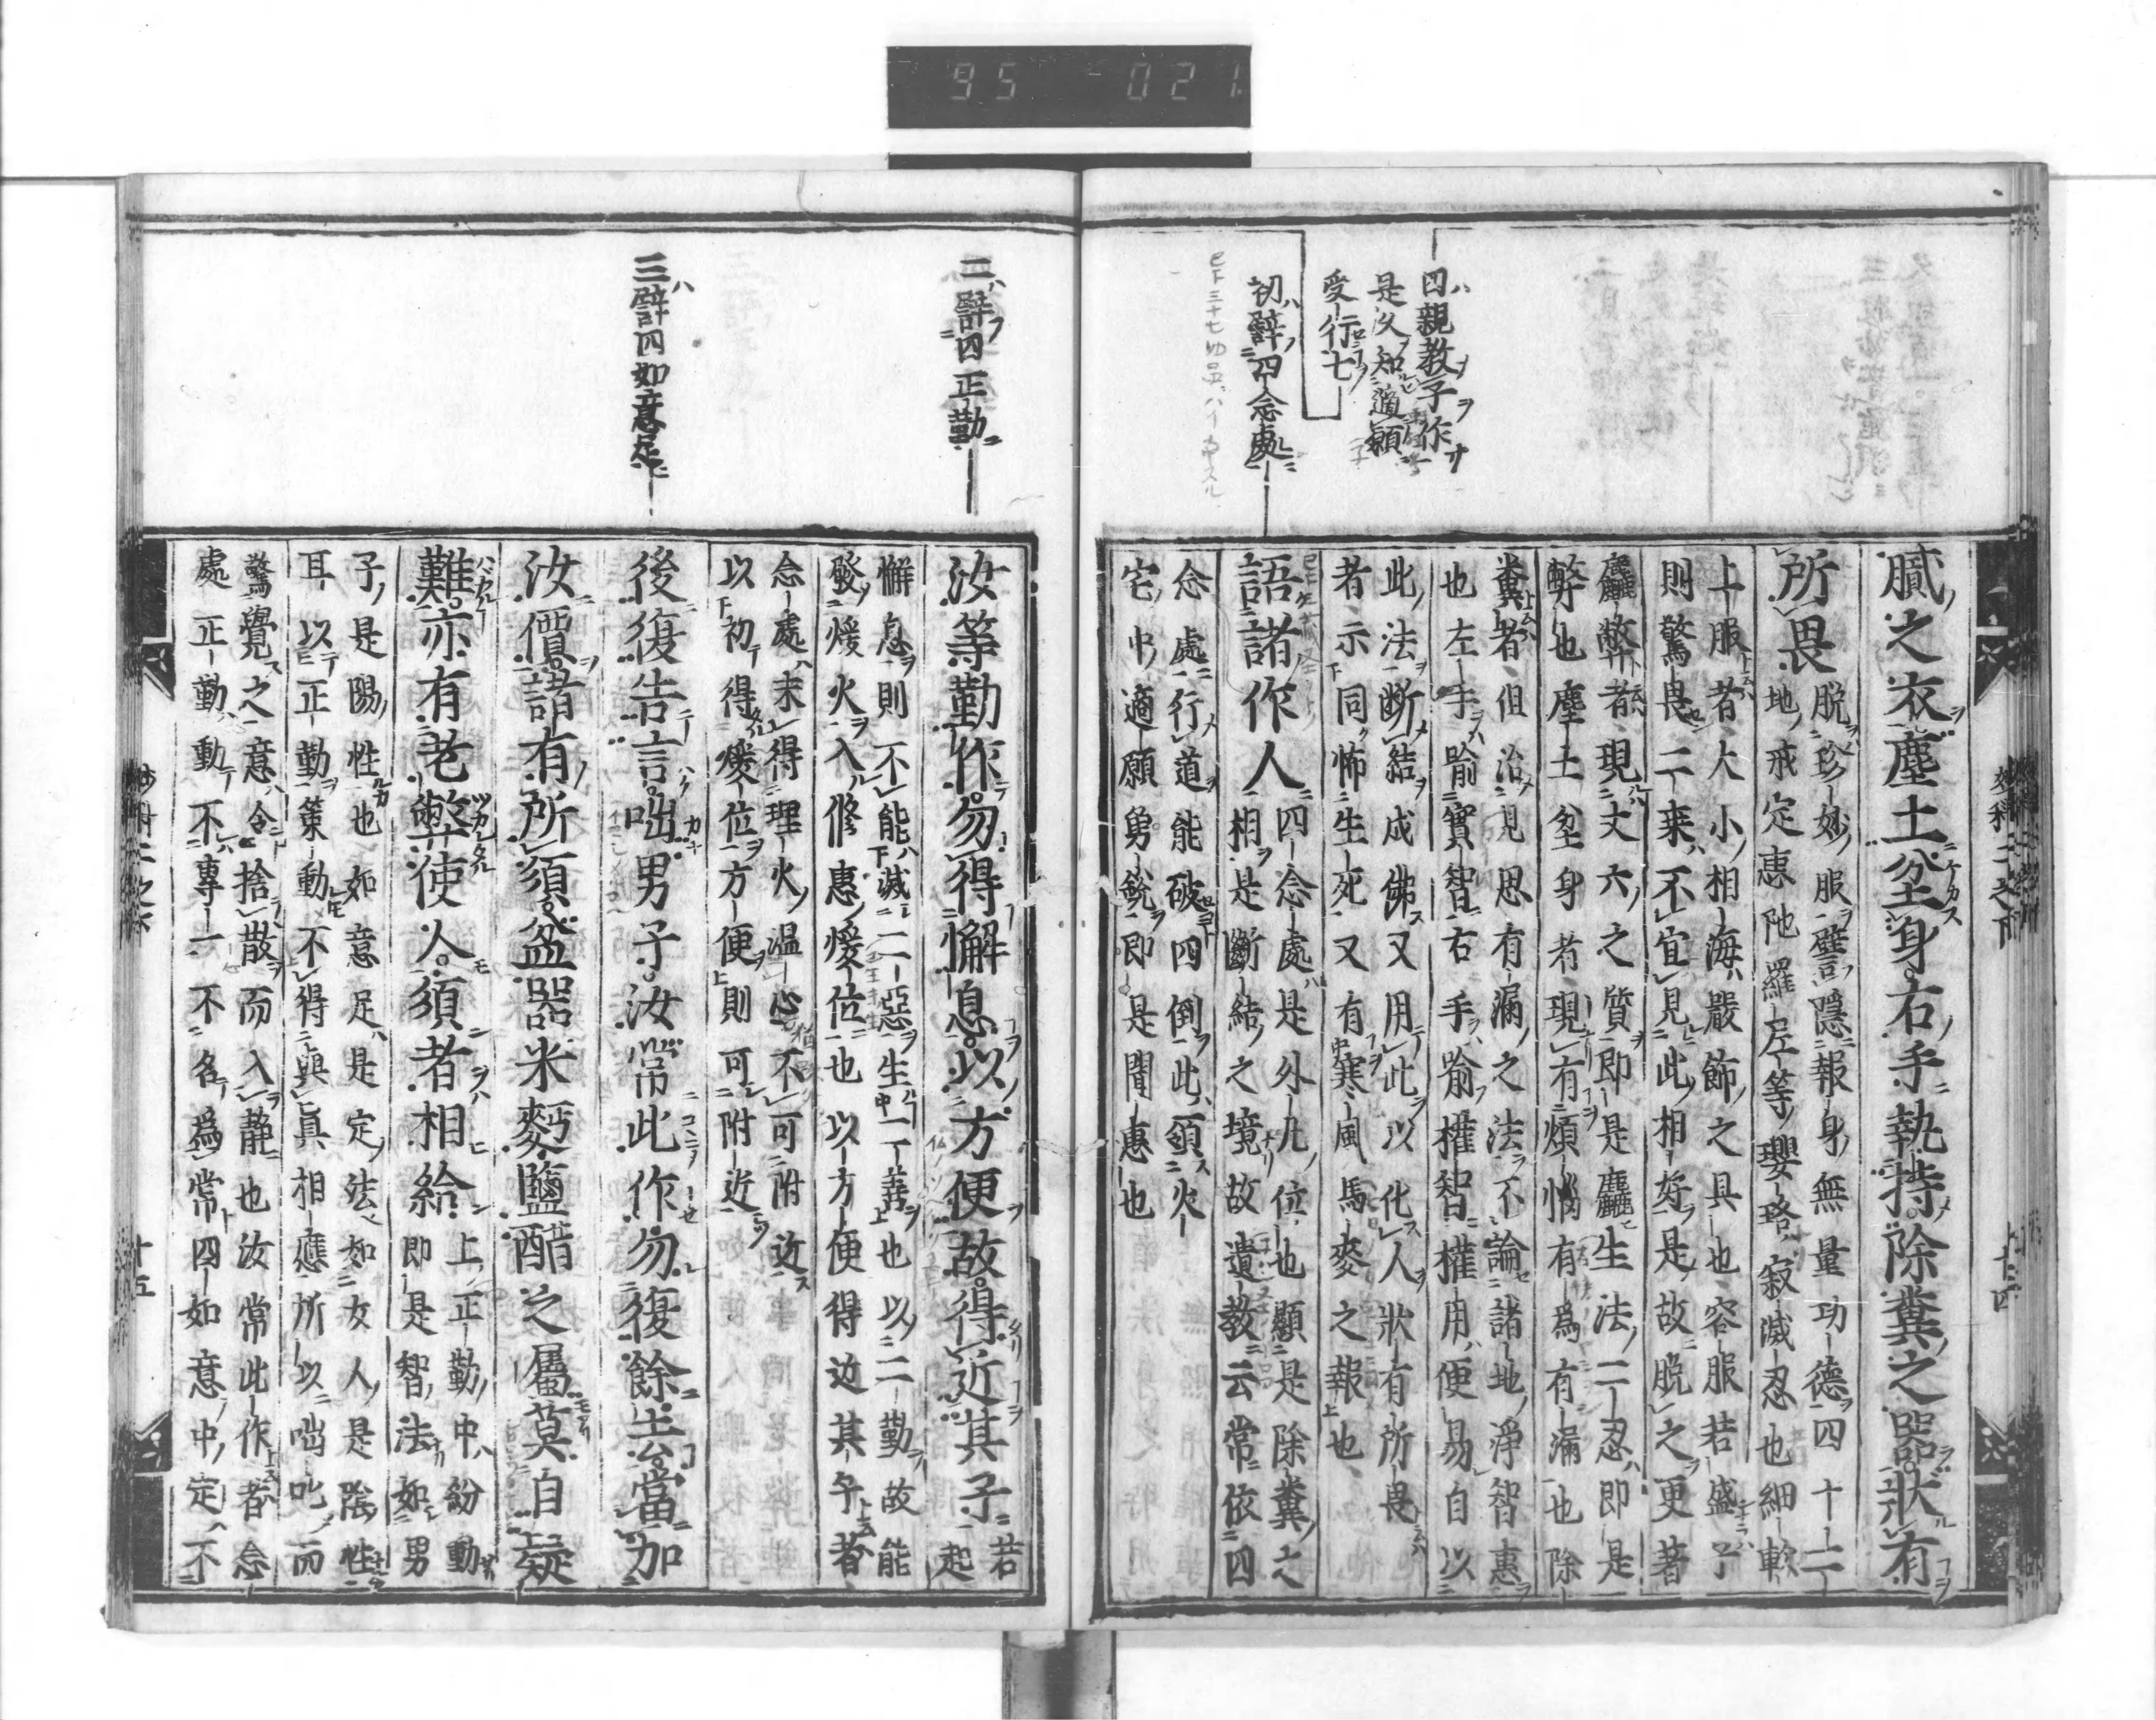 95 021
四親教子作
是父知適願
受行七
初譬四念處
膩之衣塵土坌身右手執持除糞之器狀有
所畏
脫珍妙服譬隱報身無量功德四十二
地戒定惠陀羅尼等瓔珞寂滅忍也細軟
上服者大小相海嚴飾之具也容服若盛子
則驚畏二乗不宜見此相好是故脫之更著
麤弊者現丈六之質即是麤生法二忍即是
弊也塵土坌身者現有煩惱有為有漏也除
糞者但治見思有漏之法不論諸地淨智惠
也左手喻實智右手喻權智權用便易自以
此法断結成佛又用此以化人狀有所畏
者示同怖生死又有寒風馬麥之報也
語諸作人
四念處是外凡位也顯是除糞之
相是斷結之境故遺教云常依四
念處行道能破四倒此領火
宅中適願勇銳即是聞惠也
二譬四正勤
三譬四如意足
汝等勤作勿得懈息以方便故得近其子
若起
懈息則不能滅二惡生二善也以二勤故能
發煖火入修惠煖位也以方便得近其子者
念處未得理火温心不可附近
以初得煖位方便則可附近
後復告言咄男子汝常此作勿復餘去當加
汝價諸有所須盆器米麪鹽醋之屬莫自疑
難亦有老弊使人須者相給
上正勤中紛動
即是智法如男
子是陽性也如意足是定法如女人是陰性
耳以正勤策動不得與真相應所以咄叱而
驚覺之意令捨散而入静也汝常此作者念
處正勤動不專一不名為常四如意中定不
十五